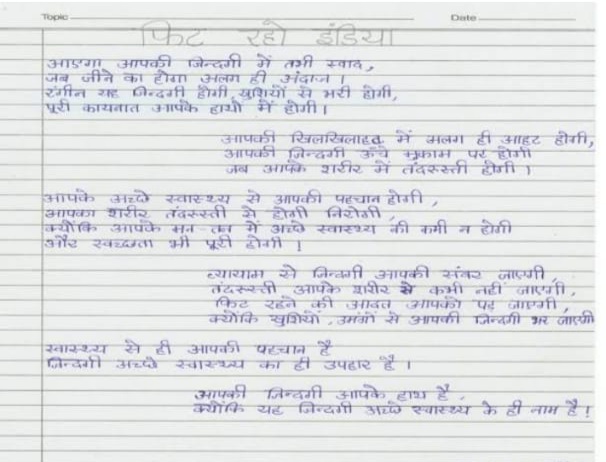 Topic
Date
फिट रहो इंडिया
आएगा आपकी जिन्दगी में तभी स्वाद,
जब जीने का होगा अलग ही अंदाज।
रंगीन यह जिन्दगी होगी, खुशियों से भरी होगी,
पूरी कायनात आपके हाथों में होगी।
आपकी खिलखिलाहट में अलग ही आहट होगी,
आपकी जिन्दगी ऊँचे मुकाम पर होगी
जब आपके शरीर में तंदरूस्ती होगी।
आपके अच्छे स्वास्थ्य से आपकी पहचान होगी,
आपका शरीर तंदरूस्ती से होगी निरोगी,
क्योंकि आपके मन-तन में अच्छे स्वास्थ्य की कमी न होगी
और स्वच्छता भी पूरी होगी।
व्यायाम से जिन्दगी आपकी संवर जाएगी,
तंदरूस्ती आपके शरीर से कभी नहीं जाएगी,
फिट रहने की आदत आपको पड़ जाएगी,
क्योंकि खुशियों, उमंगों से आपकी जिन्दगी भर जाएगी
स्वास्थ्य से ही आपकी पहचान है
जिन्दगी अच्छे स्वास्थ्य का ही उपहार है।
आपकी जिन्दगी आपके हाथ है,
क्योंकि यह जिन्दगी अच्छे स्वास्थ्य के ही नाम है!